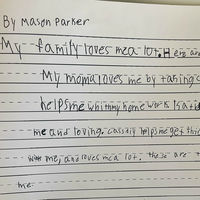 By Mason Parker
My family loves me a lot. Here are
My mom loves me by taking c
helps me whit my home work Is a
me and loving. cassidy helps me get thi
with me, and loves me a lot. these are
me.